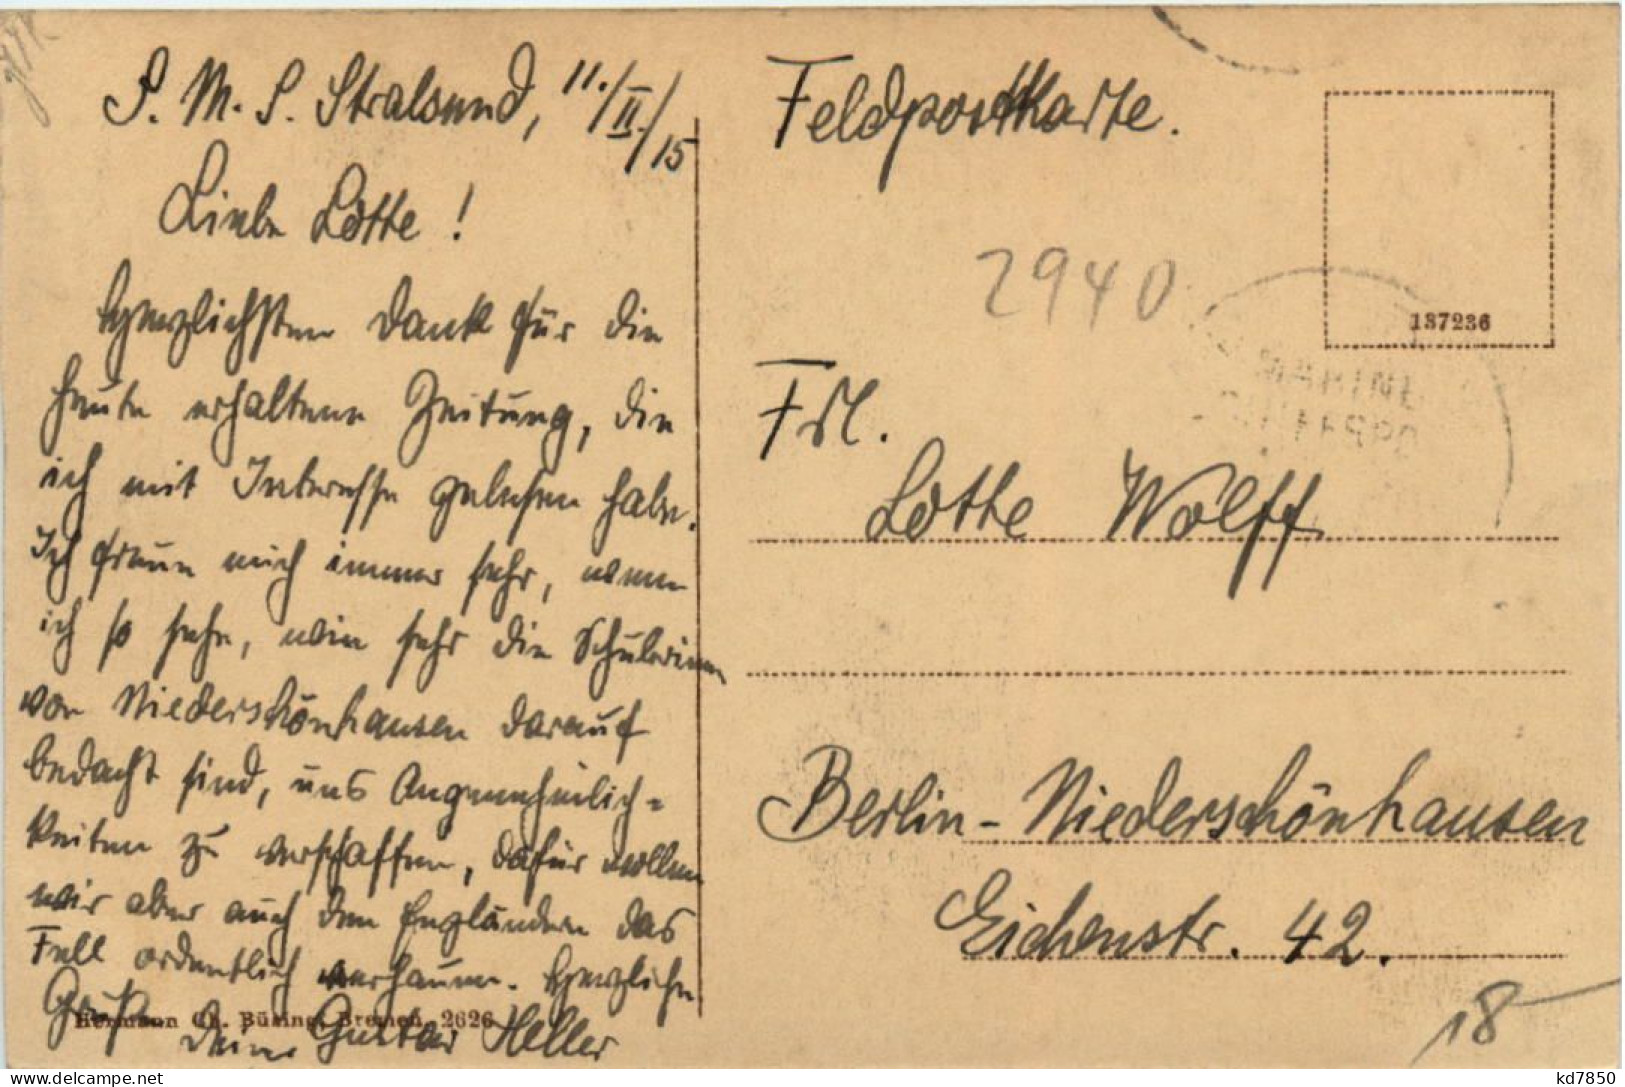 S. M. S. Stralsund, 11./II./15
Liebe Lotte!
Herzlichsten Dank für die
heute erhaltene Zeitung, die
ich mit Interesse gelesen habe.
Ich freue mich immer sehr, wenn
ich so sehe, wie sehr die Schülerinnen
von Niederschönhausen darauf
bedacht sind, uns Angenehmlich=
keiten zu verschaffen, dafür wollen
wir aber auch den Engländern das
Fell ordentlich verhauen. Herzliche
Grüße
Deine Gustav Heller
Hermann Büsing, Bremen, 2626
Feldpostkarte.
2940
137236
Frl.
Lotte Wolff
Berlin-Niederschönhausen
Eichenstr. 42.
18
kd7850